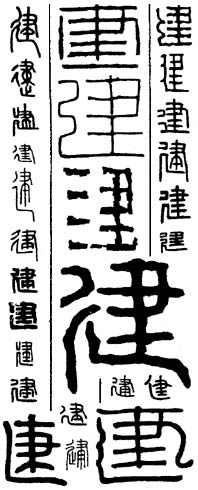 建建建建建建
建建建建
建建
建
建建
建建建建建建建建建建
建